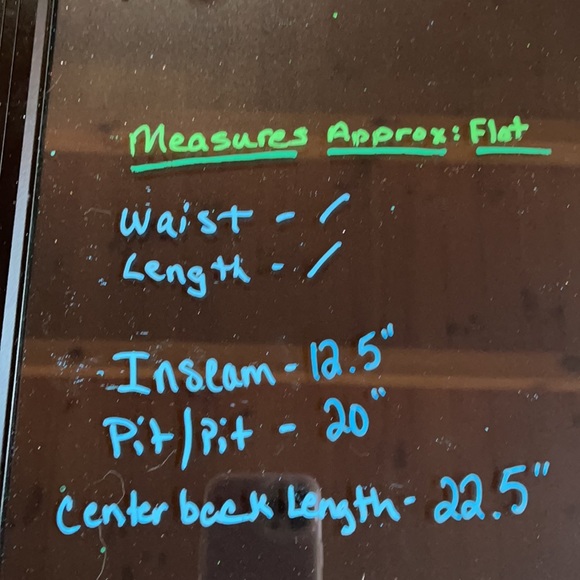 Measures Approx: Flat
Waist - /
Length - /
Inseam - 12.5"
Pit/Pit - 20"
Center back Length - 22.5"